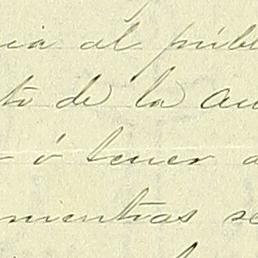 cia al públ
to de la au
ó tener
mientras se